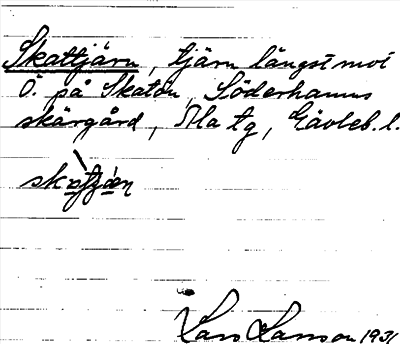 Skattjärn, tjärn längst mot
Ö. på Skatön, Söderhamns
skärgård, Ala tg, Gävleb. l.
skat̀jæ̀n
Lars Larsson 1931